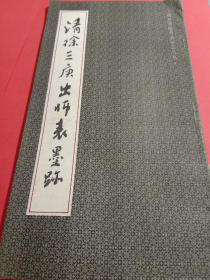 清徐三庚出师表墨跡